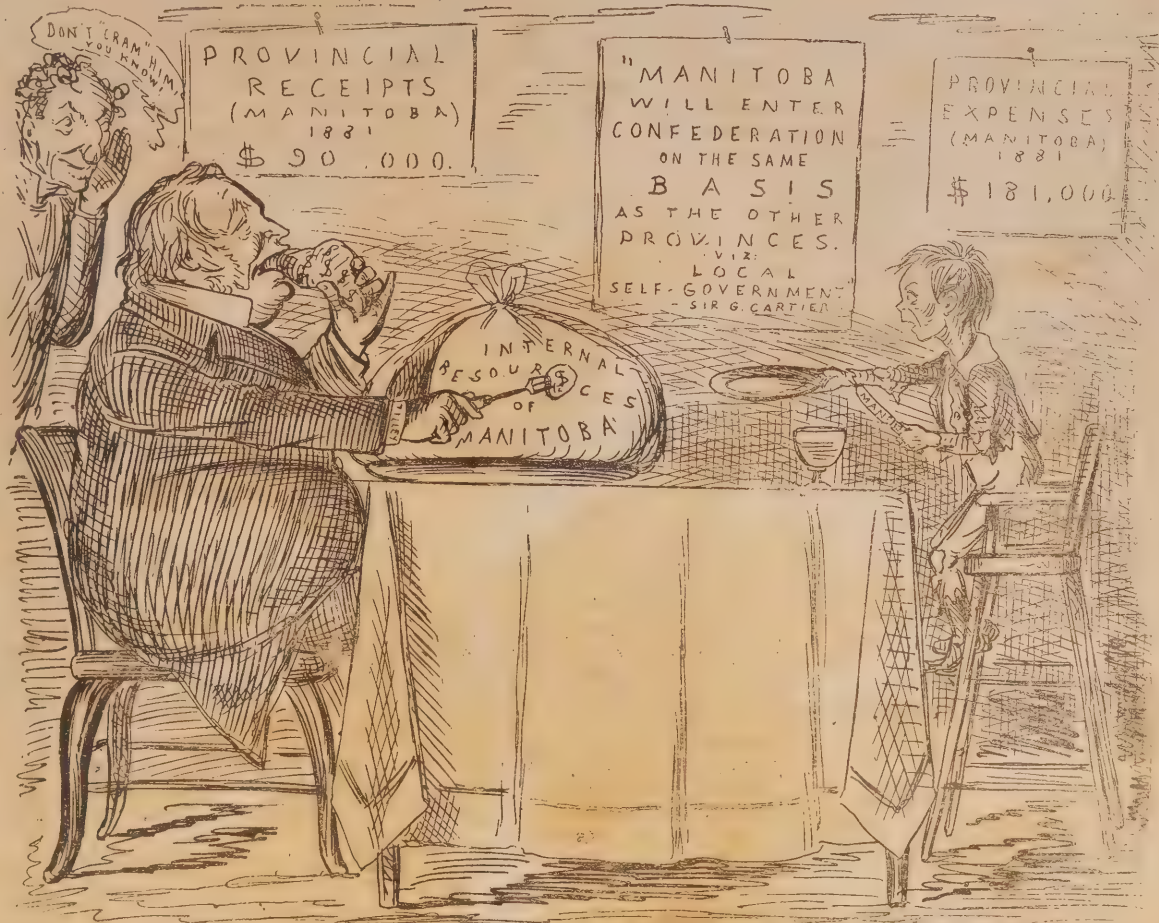 DON'T "CRAM" HIM,
YOU KNOW!
PROVINCIAL
RECEIPTS
(MANITOBA)
1881
$ 90.000.
"MANITOBA
WILL ENTER
CONFEDERATION
ON THE SAME
BASIS
AS THE OTHER
PROVINCES.
VIZ:
LOCAL
SELF-GOVERNMENT"
- SIR G. CARTIER
PROVINCIAL
EXPENSES
(MANITOBA)
1881
$ 181,000
INTERNAL
RESOURCES
OF
MANITOBA
$